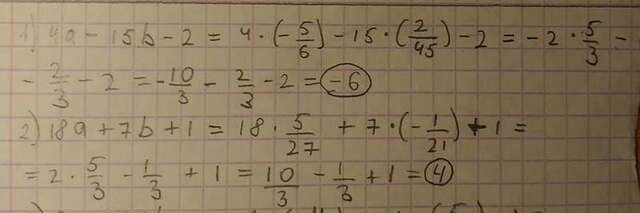 1) 4a - 15b - 2 = 4 · (-5/6) - 15 · (2/45) - 2 = -2 · 5/3 -
- 2/3 - 2 = -10/3 - 2/3 - 2 = -6
2) 18a + 7b + 1 = 18 · 5/27 + 7 · (-1/21) + 1 =
= 2 · 5/3 - 1/3 + 1 = 10/3 - 1/3 + 1 = 4